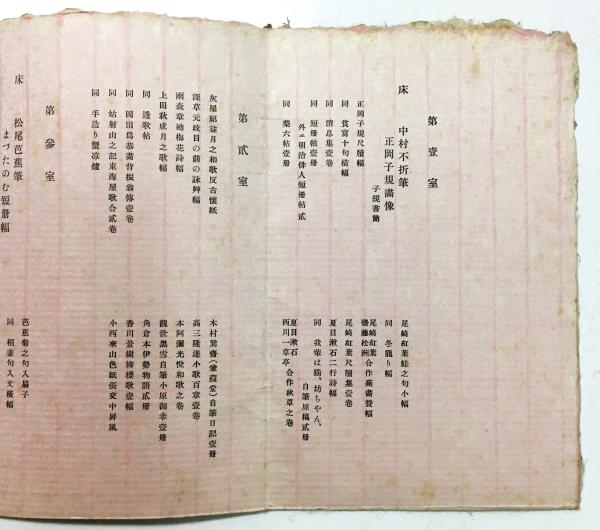 第壹室
床　中村不折筆
正岡子規畫像
子規書簡
正岡子規尺牘幅
同　貧富十句橫幅
同　消息集壹卷
同　短册帖壹册
外ニ明治俳人短册帖貳
同　菓六帖壹册
尾崎紅葉蛙之句小幅
同　冬籠り幅
尾崎紅葉
齋藤松洲合作蕪畵賛幅
尾崎紅葉尺牘集壹卷
夏目漱石二行詩幅
同　我輩は猫、坊ちやん、
自筆原稿貳册
夏目漱石
西川一草亭合作秋草之卷
第貳室
灰屋紹益月之和歌反古懷紙
深草元政目の前の詠艸幅
雨森章廸梅花詩幅
上田秋成月之歌幅
同　遶歌帖
同　岡田爲恭畵背振翁傳壹卷
同　姑射山之記東海屋歌合貳卷
同　手造り蟹凉爐
木村巽齋(蒹葭堂)自筆日記壹册
高三隆達小歌百章壹卷
本阿彌光悅和歌之卷
觀世黑雪自筆小原御幸壹册
角倉本伊勢物語貳册
香川景樹柳櫻歌壹幅
小西來山色紙張交中屏風
第參室
床　松尾芭蕉筆
まづたのむ短册幅
芭蕉菊之句入扇子
同　稻妻句入文橫幅